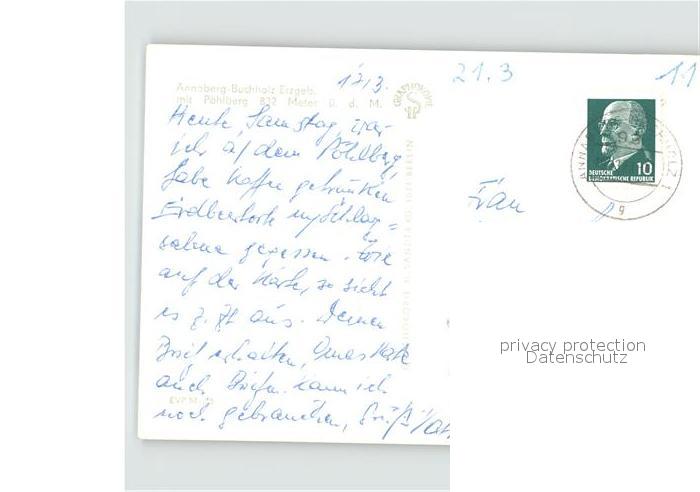 17/3.
21.3
11
Annaberg-Buchholz Erzgeb.
mit Pöhlberg 832 Meter ü. d. M.
Heute, Samstag, war
ich auf dem Pöhlberg,
habe Kaffee getrunken
Erdbeertorte m/Schlag=
sahne gegessen. Wie
auf der Karte, so sieht
es z. Zt aus. Deinen
Brief erhalten, Omas Karte
auch. Briefm. kann ich
noch gebrauchen,
Frau
DEUTSCHE
DEMOKRATISCHE REPUBLIK
10
ANNA
HOLZ 1
g
privacy protection
Datenschutz